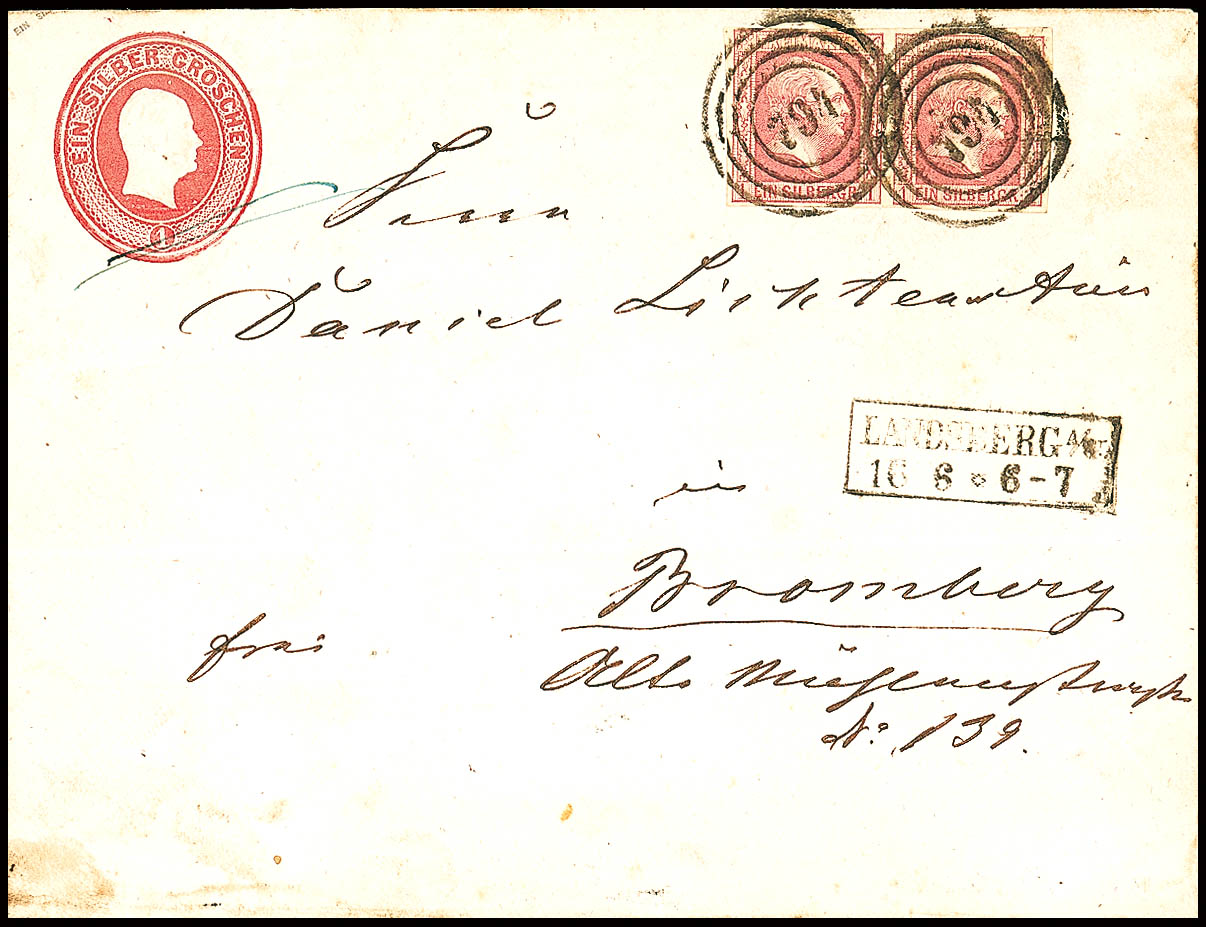 EIN SILBER GROSCHEN
1
794
794
1 EIN SILBERGR. 1
1 EIN SILBERGR.
Daniel Lichtenstein
LANDSBERG A/W
16 6 * 6-7
in
Bromberg
frei
Alte
No: 139.